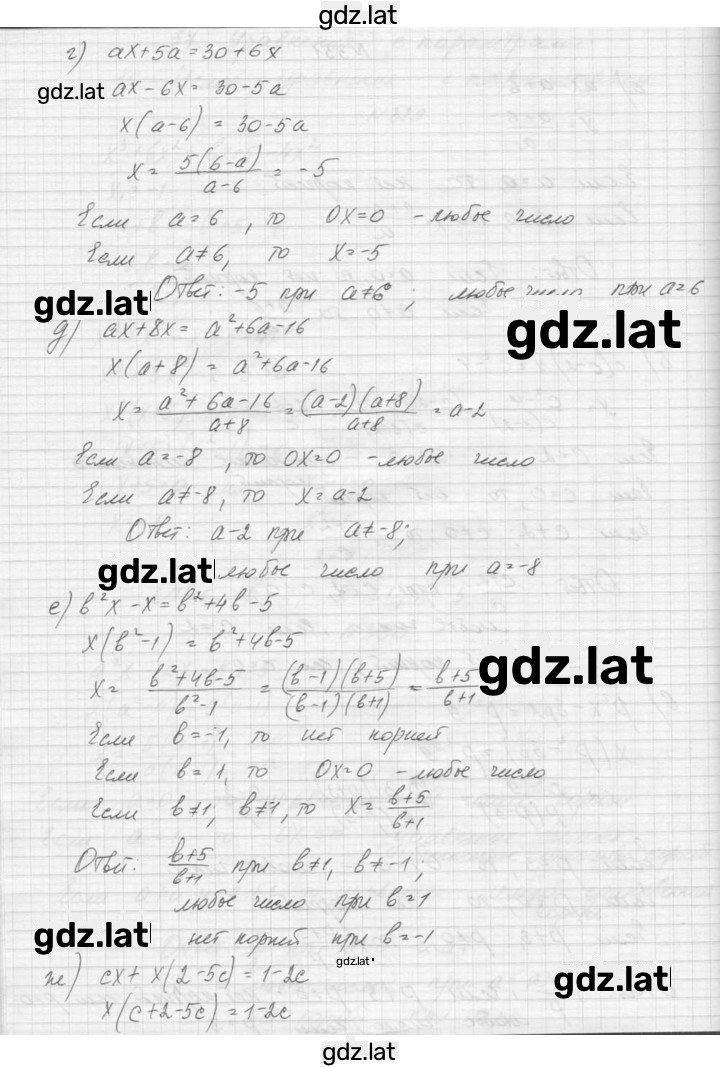 gdz.lat
г) ax+5a=30+6x
gdz.lat ax-6x=30-5a
x(a-6)=30-5a
x= 5(6-a)/a-6 = -5
Если a=6, то 0x=0 - любое число
Если a≠6, то x=-5
Ответ: -5 при a≠6; любое число при a=6
gdz.lat
gdz.lat
д) ax+8x= a²+6a-16
x(a+8) = a²+6a-16
x= a²+6a-16/a+8 = (a-2)(a+8)/a+8 = a-2
Если a=-8, то 0x=0 - любое число
Если a≠-8, то x=a-2
Ответ: a-2 при a≠-8;
gdz.lat любое число при a=-8
е) b²x-x=b²+4b-5
x(b²-1) = b²+4b-5
x= b²+4b-5/b²-1 = (b-1)(b+5)/(b-1)(b+1) = b+5/b+1
gdz.lat
Если b=-1, то нет корней
Если b=1, то 0x=0 - любое число
Если b≠1, b≠1, то x= b+5/b+1
Ответ: b+5/b+1 при b≠1, b≠-1;
любое число при b=1
gdz.lat нет корней при b=-1
gdz.lat
ж) cx+x(2-5c)=1-2c
gdz.lat
x(c+2-5c)=1-2c
gdz.lat